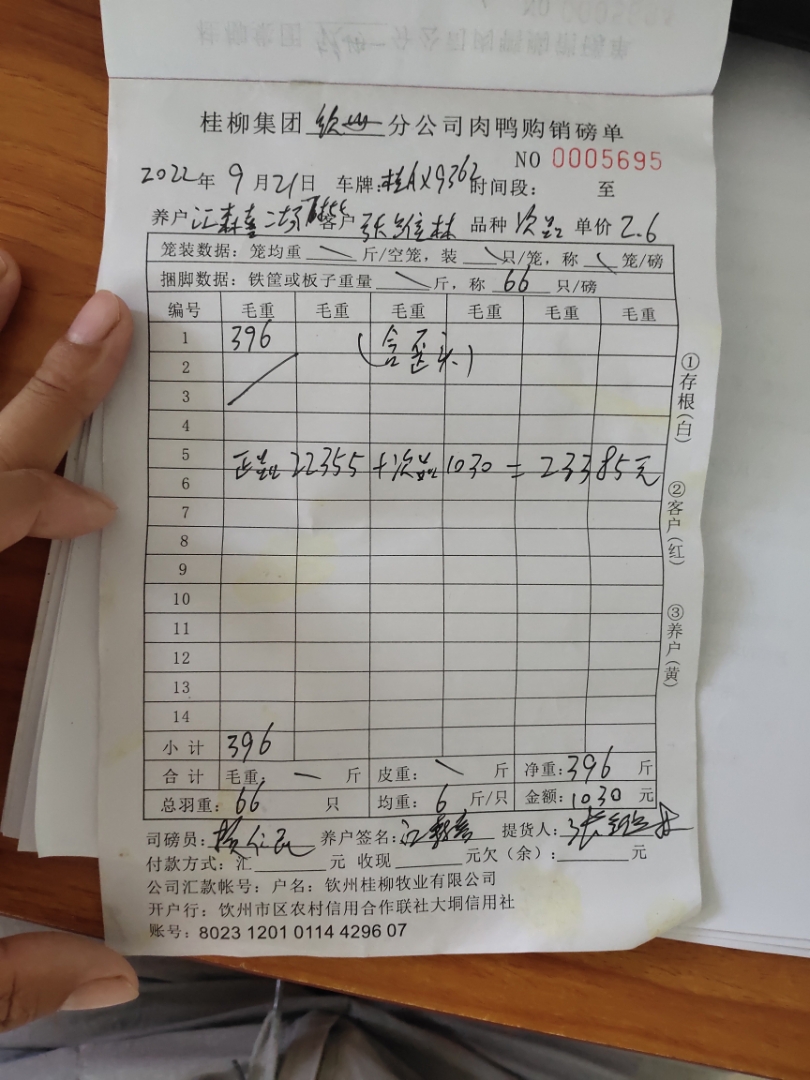 桂柳集团 钦州 分公司肉鸭购销磅单
NO 0005695
2022年 9月21日 车牌:桂AX9362 时间段: 至
养户 江森喜二场 客户 张维林 品种 次品 单价 2.6
笼装数据:笼均重 斤/空笼,装 只/笼,称 笼/磅
捆脚数据:铁筐或板子重量 斤,称 66 只/磅
编号 毛重 毛重 毛重 毛重 毛重 毛重
1 396 (含歪头)
2
3
4
5 正品22355+次品1030=23385元
6
7
8
9
10
11
12
13
14
小计 396
合计 毛重: 斤 皮重: 斤 净重:396 斤
总羽重:66 只 均重:6 斤/只 金额:1030 元
司磅员: 养户签名: 提货人:
付款方式:汇 元 收现 元欠(余): 元
公司汇款帐号:户名:钦州桂柳牧业有限公司
开户行:饮州市区农村信用合作联社大垌信用社
账号:8023 1201 0114 4296 07
①存根(白)
②客户(红)
③养户(黄)